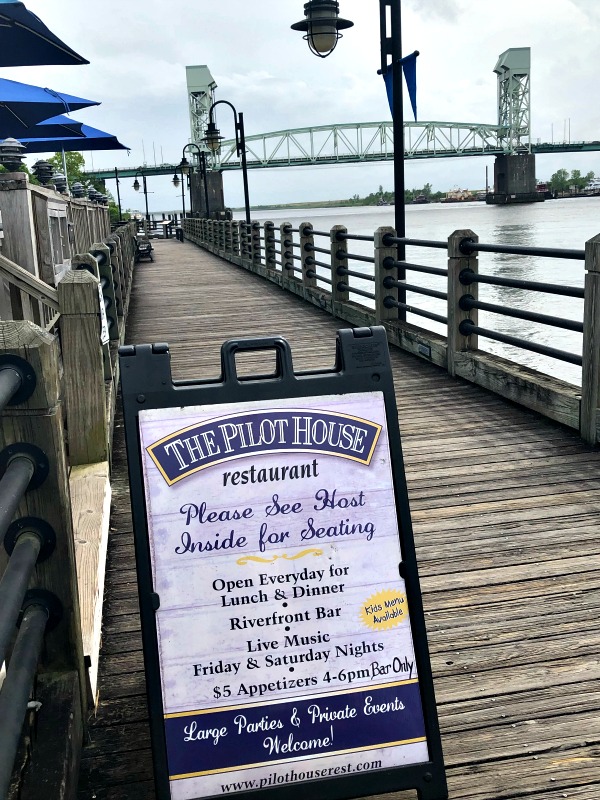 THE PILOT HOUSE
restaurant
Please See Host
Inside for Seating
Open Everyday for
Lunch & Dinner
•
Riverfront Bar
•
Kids Menu
Available
Live Music
Friday & Saturday Nights
•
$5 Appetizers 4-6pm Bar Only
Large Parties & Private Events
Welcome!
www.pilothouserest.com